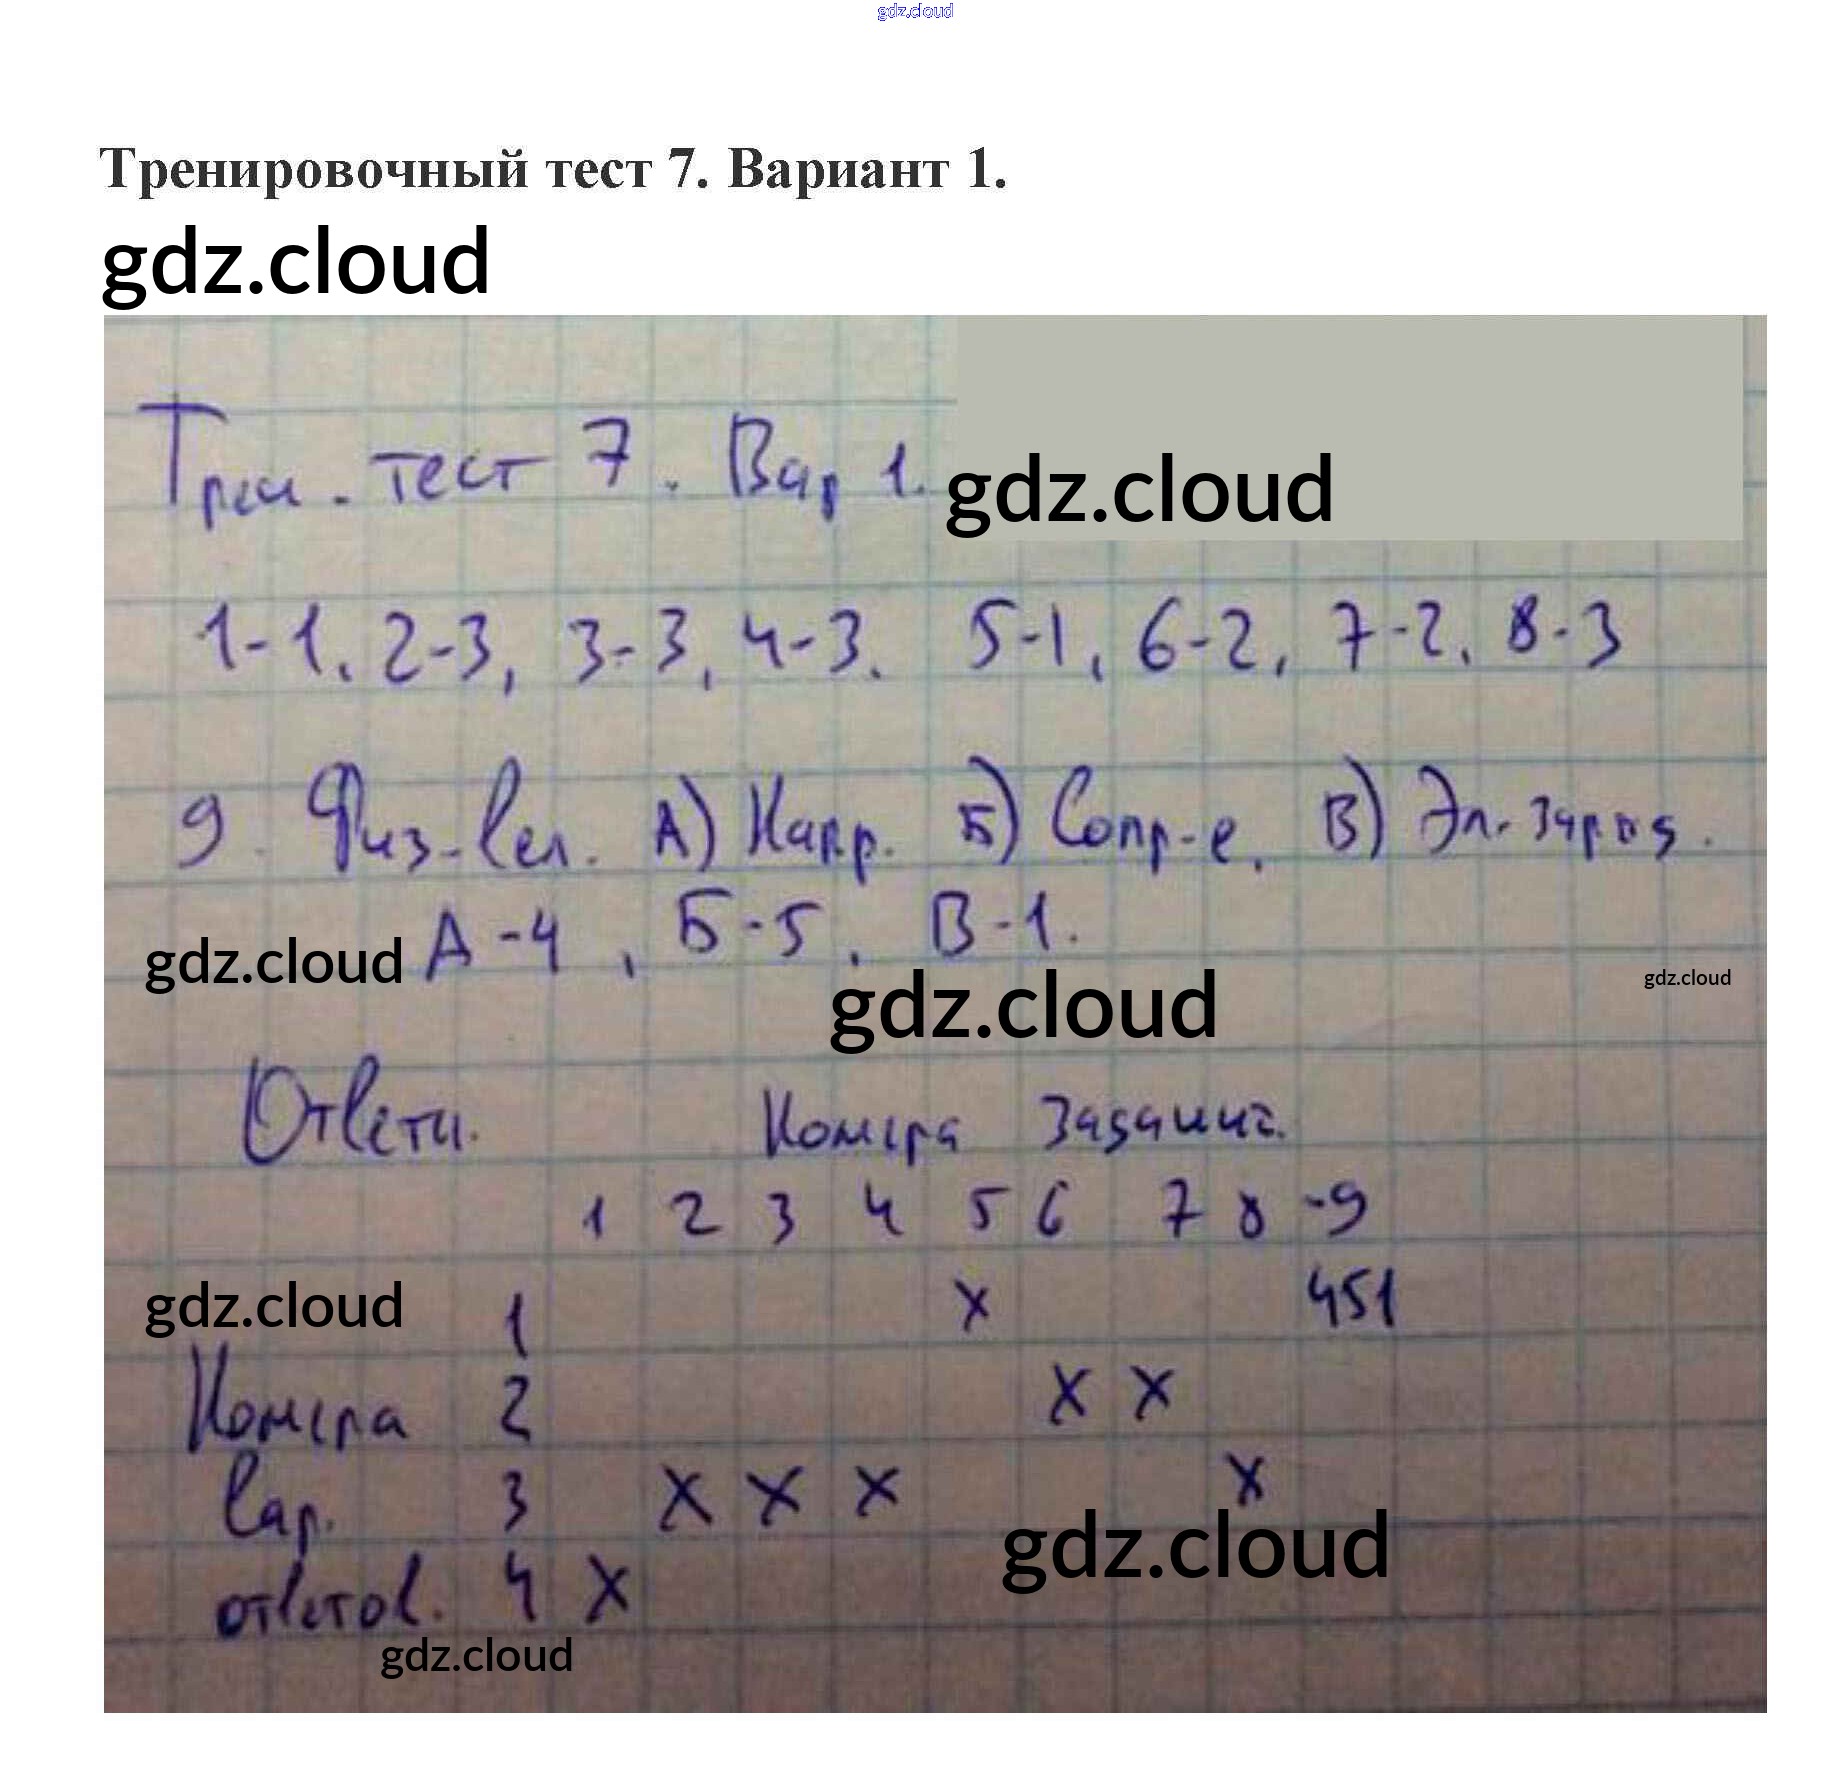 gdz.cloud
Тренировочный тест 7. Вариант 1.
gdz.cloud
Трен. тест 7. Вар 1.
gdz.cloud
1-1, 2-3, 3-3, 4-3. 5-1, 6-2, 7-2, 8-3
9. Физ-вел. А) Напр. Б) Сопр-е. В) Эл. заряд.
А-4, Б-5, В-1.
gdz.cloud
gdz.cloud
gdz.cloud
Ответы. Номера заданий.
1 2 3 4 5 6 7 8 9
gdz.cloud
1 х 451
Номера 2 х х
вар. 3 х х х х
gdz.cloud
ответов. 4 х
gdz.cloud